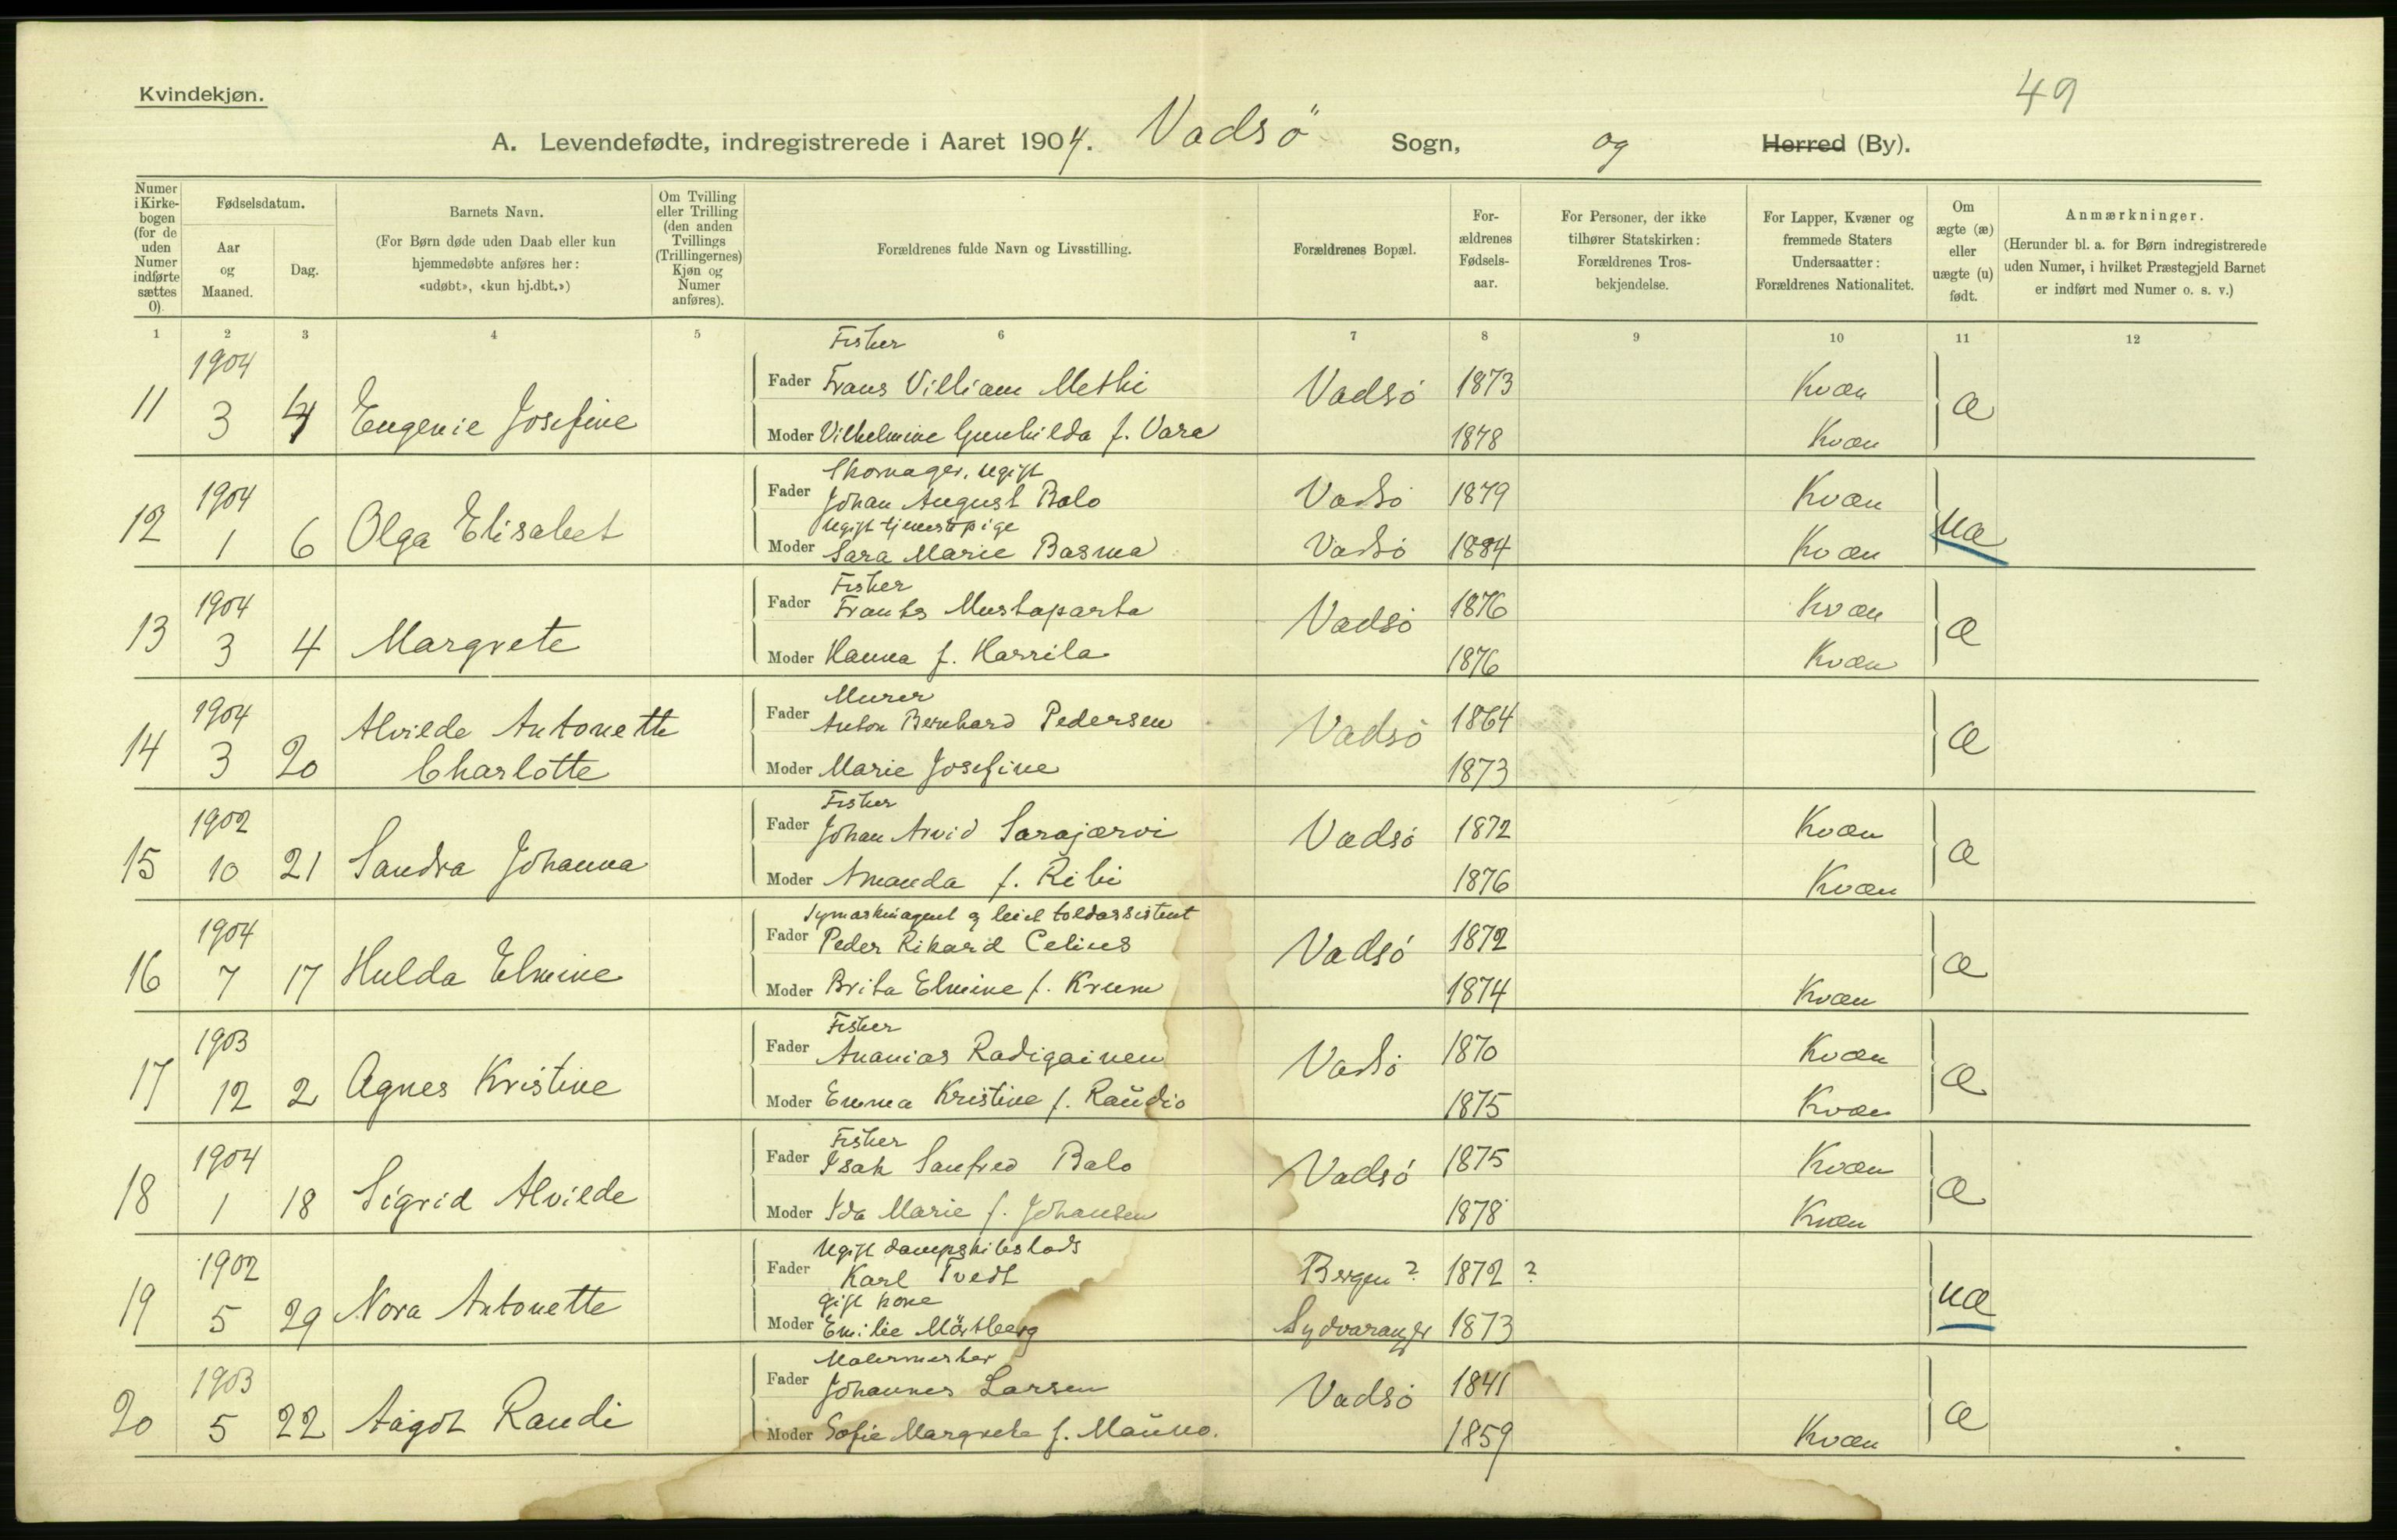 Kvindekjøn.
49
A. Levendefødte, indregistrerede i Aaret 1904. Vadsö Sogn, og Herred (By).
Numer i Kirkebogen (for de uden Numer indførte sættes 0).
Fødselsdatum.
Aar og Maaned.
Dag.
Barnets Navn.
(For Børn døde uden Daab eller kun hjemmedøbte anføres her: «udøbt», «kun hj.dbt.»)
Om Tvilling eller Trilling (den anden Tvillings (Trillingernes) Kjøn og Numer anføres).
Forældrenes fulde Navn og Livsstilling.
Forældrenes Bopæl.
Forældrenes Fødselsaar.
For Personer, der ikke tilhører Statskirken: Forældrenes Trosbekjendelse.
For Lapper, Kvæner og fremmede Staters Undersaatter: Forældrenes Nationalitet.
Om ægte (æ) eller uægte (u) født.
Anmærkninger.
(Herunder bl. a. for Børn indregistrerede uden Numer, i hvilket Præstegjeld Barnet er indført med Numer o. s. v.)
1 2 3 4 5 6 7 8 9 10 11 12
1904 Fisker
11 3 4 Eugenie Josefine Fader Frans Villiam Methi Vadsö 1873 Kvæn æ
Moder Vilhelmine Gunhilda f. Vara 1878 Kvæn
1904 Skomager, ugift
12 1 6 Olga Elisabet Fader Johan August Balo Vadsö 1879 Kvæn uæ
Ugift tjenestpige
Moder Sara Marie Basma Vadsö 1884 Kvæn
1904 Fisker
13 3 4 Margrete Fader Frants Mustaparta Vadsö 1876 Kvæn æ
Moder Hanna f. Harrila 1876 Kvæn
1904 Murer
14 3 20 Alvilde Antonette Charlotte Fader Anton Bernhard Pedersen Vadsö 1864 æ
Moder Marie Josefine 1873
1902 Fisker
15 10 21 Sandra Johanna Fader Johan Arvid Sarajærvi Vadsö 1872 Kvæn æ
Moder Amanda f. Ribi 1876 Kvæn
1904 Symaskinagent og leiel toldassistent
16 7 17 Hulda Elmine Fader Peder Rikard Celius Vadsö 1872 æ
Moder Brita Elmine f. Krum 1874 Kvæn
1903 Fisker
17 12 2 Agnes Kristine Fader Ananias Radigainen Vadsö 1870 Kvæn æ
Moder Emma Kristine f. Raŭdio 1875 Kvæn
1904 Fisker
18 1 18 Sigrid Alvilde Fader Isak Sanfred Balo Vadsö 1875 Kvæn æ
Moder Ida Marie f. Johansen 1878 Kvæn
1902 Ugift dampskibslods
19 5 29 Nora Antonette Fader Karl Tvedt Bergen? 1872? uæ
gift kone
Moder Emilie Mörtberg Sydvaranger 1873
1903 Malermester
20 5 22 Aagot Randi Fader Johannes Larsen Vadsö 1841 æ
Moder Sofie Margrete f. Maŭno. 1859 Kvæn